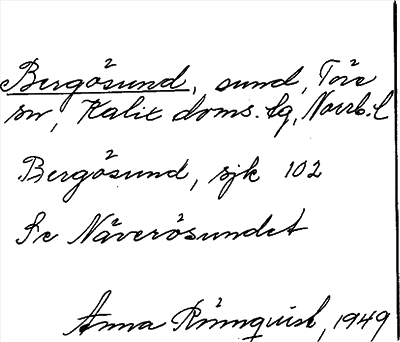 Bergösund, sund, Töre
sn, Kalix doms. lg, Norrb. l
Bergösund, sjk 102
Se Näverösundet
Anna Rönnquist, 1949